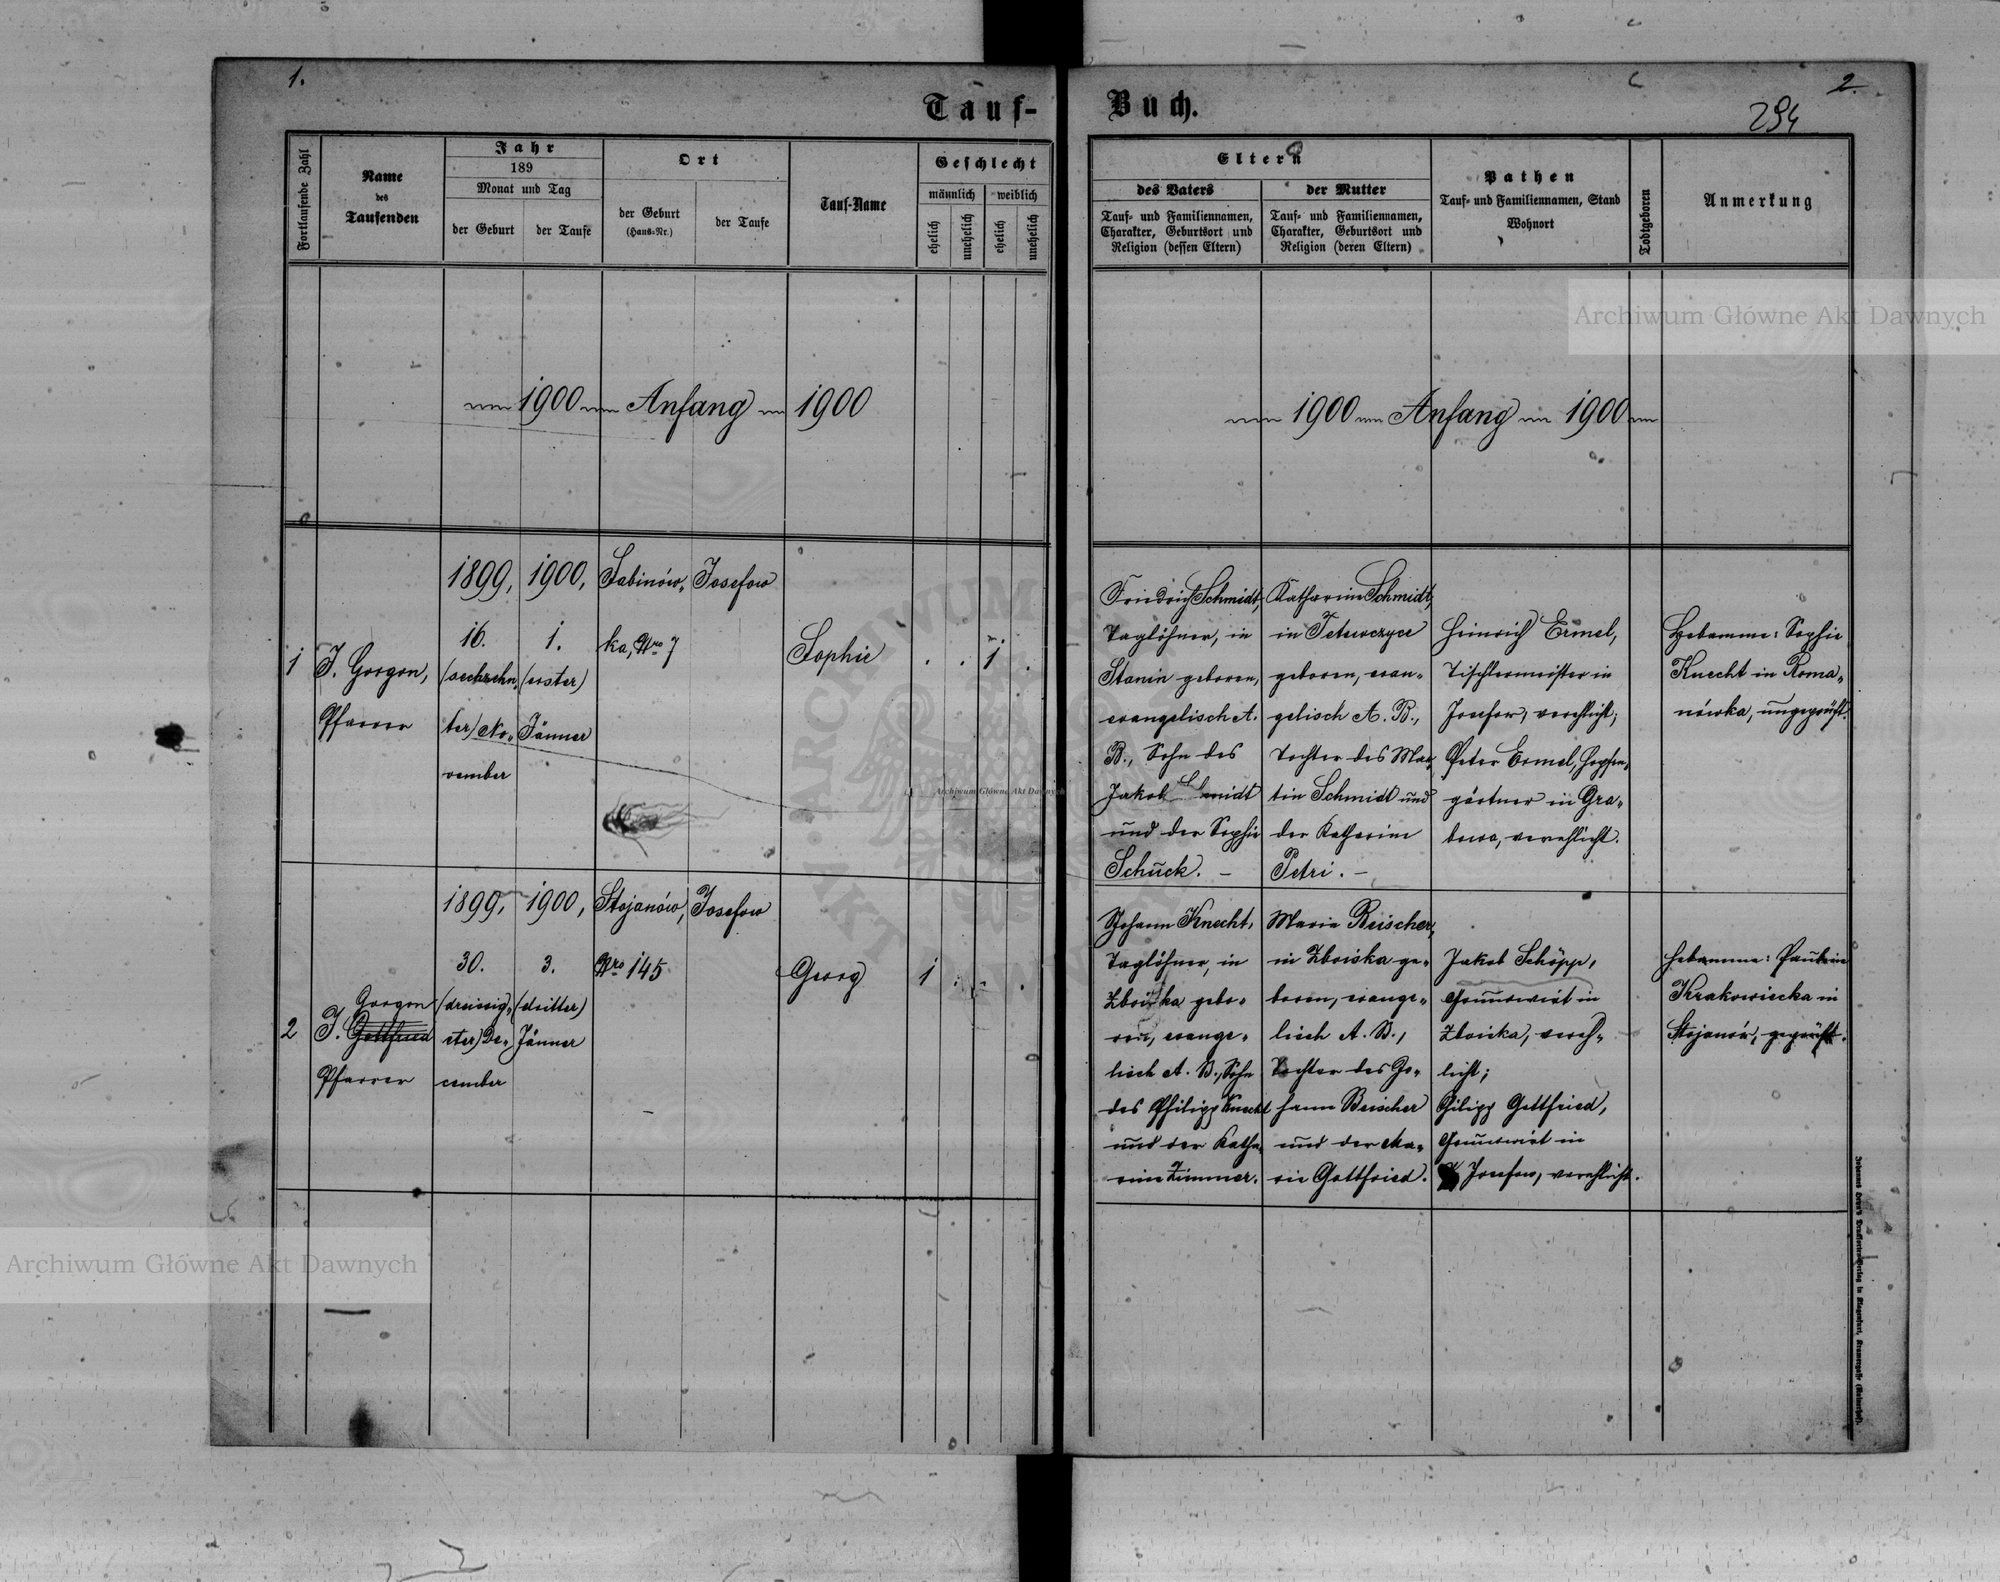 1.
Tauf-
Fortlaufende Zahl
Name
des
Taufenden
Jahr
189
Monat und Tag
der Geburt
der Taufe
Ort
der Geburt
(Haus-Nr.)
der Taufe
Tauf-Name
Geschlecht
männlich
weiblich
ehelich
unehelich
ehelich
unehelich
1900 Anfang 1900
1
J. Gorgon,
Pfarrer
1899,
16.
(sechzehn-
ter) No-
vember
1900,
1.
(erster)
Jänner
Sabinów-
ka, Nro 7
Josefow
Sophie
. . 1 .
2
Gorgon
J. Gottfried
Pfarrer
1899,
30.
(dreissig-
ster) De-
cember
1900,
3.
(dritter)
Jänner
Stojanów,
Nro 145
Josefow
Georg
1 . . .
Buch.
2.
294
Eltern
des Vaters
Tauf- und Familiennamen,
Charakter, Geburtsort und
Religion (dessen Eltern)
der Mutter
Tauf- und Familiennamen,
Charakter, Geburtsort und
Religion (deren Eltern)
Pathen
Tauf- und Familiennamen, Stand
Wohnort
Todtgeboren
Anmerkung
1900 Anfang 1900
Friedrich Schmidt,
Taglöhner, in
Stanin geboren,
evangelisch A.
B., Sohn des
Jakob Schmidt
und der Sophie
Schuck. –
Katharina Schmidt,
in Tetewczyce
geboren, evan-
gelisch A. B.,
Tochter des Mar-
tin Schmidt und
der Katharina
Petri. –
Heinrich Ermel,
Tischlermeister in
Josefow, verehlicht;
Peter Ermel, Hopfen-
gärtner in Gra-
bowa, verehlicht.
Hebamme: Sophie
Knecht in Roma-
nówka, ungeprüft.
Johann Knecht,
Taglöhner, in
Zboiska gebo-
ren, evange-
lisch A. B., Sohn
des Philipp Knecht
und der Katha-
rina Zimmer.
Maria Beischer,
in Zboiska ge-
boren, evange-
lisch A. B.,
Tochter des Jo-
hann Beischer
und der Ma-
rie Gottfried.
Jakob Schöpp,
Grundwirt in
Zboiska, vereh-
licht;
Philipp Gottfried,
Grundwirt in
Josefow, verehlicht.
Hebamme: Paulina
Krakowiecka in
Stojanów, geprüft.
Archiwum Główne Akt Dawnych
Archiwum Główne Akt Dawnych
Archiwum Główne Akt Dawnych